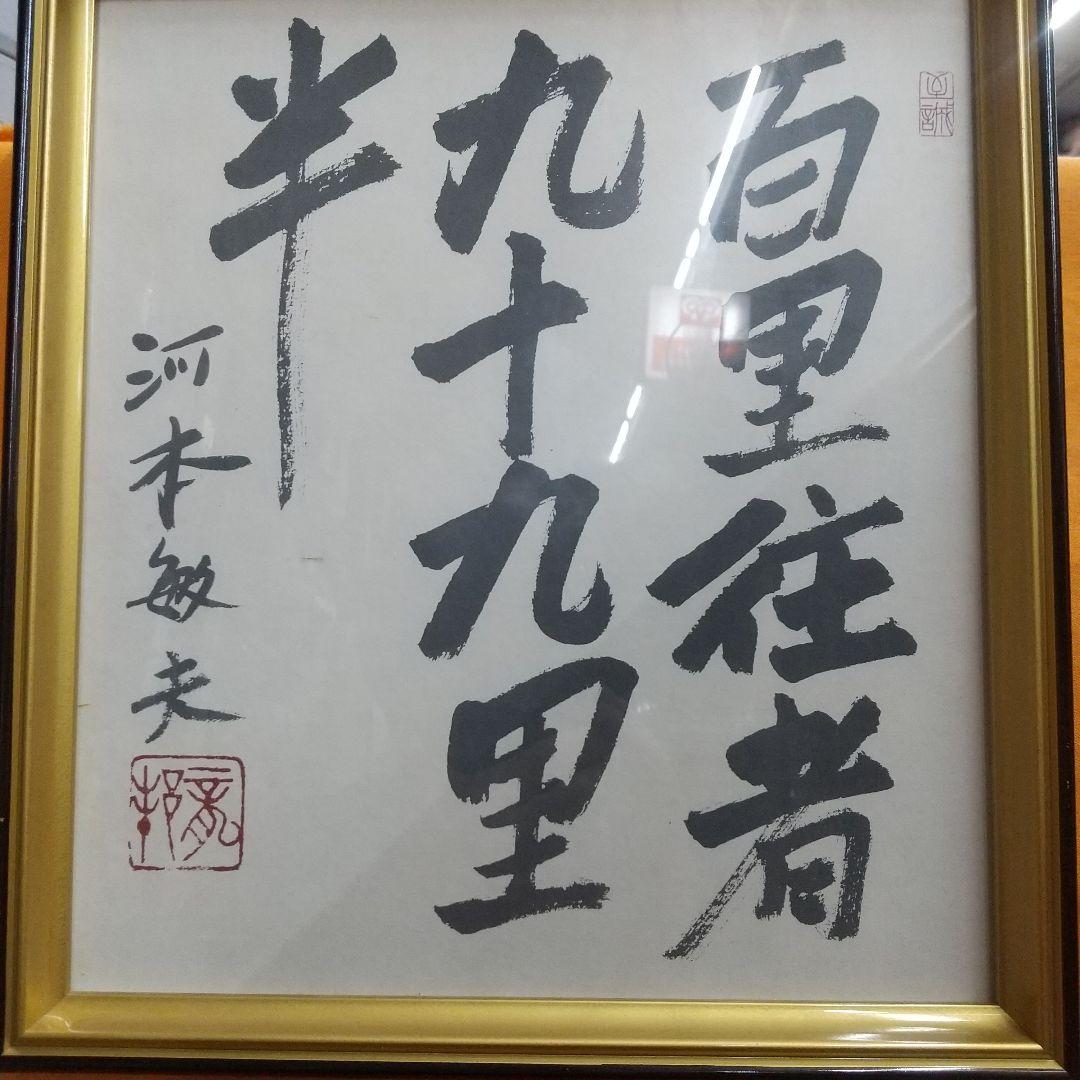 百里往者
九十九里
半
河本敏夫
至誠